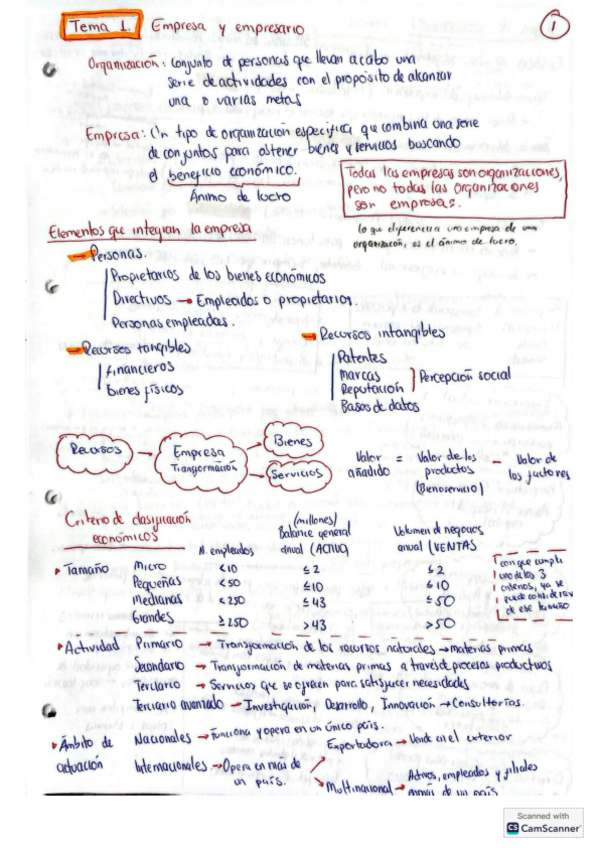 Tema 1. Empresa y empresario
1
Organización: Conjunto de personas que llevan a cabo una
serie de actividades con el propósito de alcanzar
una o varias metas
Empresa: Un tipo de organización específica, que combina una serie
de conjuntos para obtener bienes y servicios buscando
el beneficio económico.
Ánimo de lucro
Todas las empresas son organizaciones,
pero no todas las organizaciones
son empresas.
lo que diferencia una empresa de una
organización, es el ánimo de lucro.
Elementos que integran la empresa
Personas.
Propietarios de los bienes económicos
Directivos → Empleados o propietarios.
Personas empleadas.
Recursos tangibles
Financieros
Bienes físicos
Recursos intangibles
Patentes
Marcas
Reputación
Percepción social
Bases de datos
Recursos → Empresa Tranqormación
Bienes
Servicios
Valor añadido = Valor de los productos (Bienoservicio) − Valor de los factores
Criterio de clasificación
económicos
N. empleados
(millones)
Balance general
anual (ACTIVO)
Volumen de negocios
anual (VENTAS
Tamaño Micro <10 ≤2 ≤2
Pequeñas <50 ≤10 ≤10
Medianas <250 ≤43 ≤50
Grandes ≥250 >43 >50
con que cumpla
uno de los 3
criterios, ya se
puede considerar
de ese tamaño
Actividad Primario → Transformación de los recursos naturales → materias primas
Secundario → Transformación de materias primas a través de procesos productivos
Terciario → Servicios que se ofrecen para satisfacer necesidades
Terciario avanzado → Investigación, Desarrollo, Innovación → Consultorías.
Ámbito de
actuación
Nacionales → Funciona y opera en un único país.
Internacionales → Opera en más de
un país.
Exportadora → Vende en el exterior
Multinacional → Activos, empleados y filiales
en más de un país
Scanned with
CS CamScanner